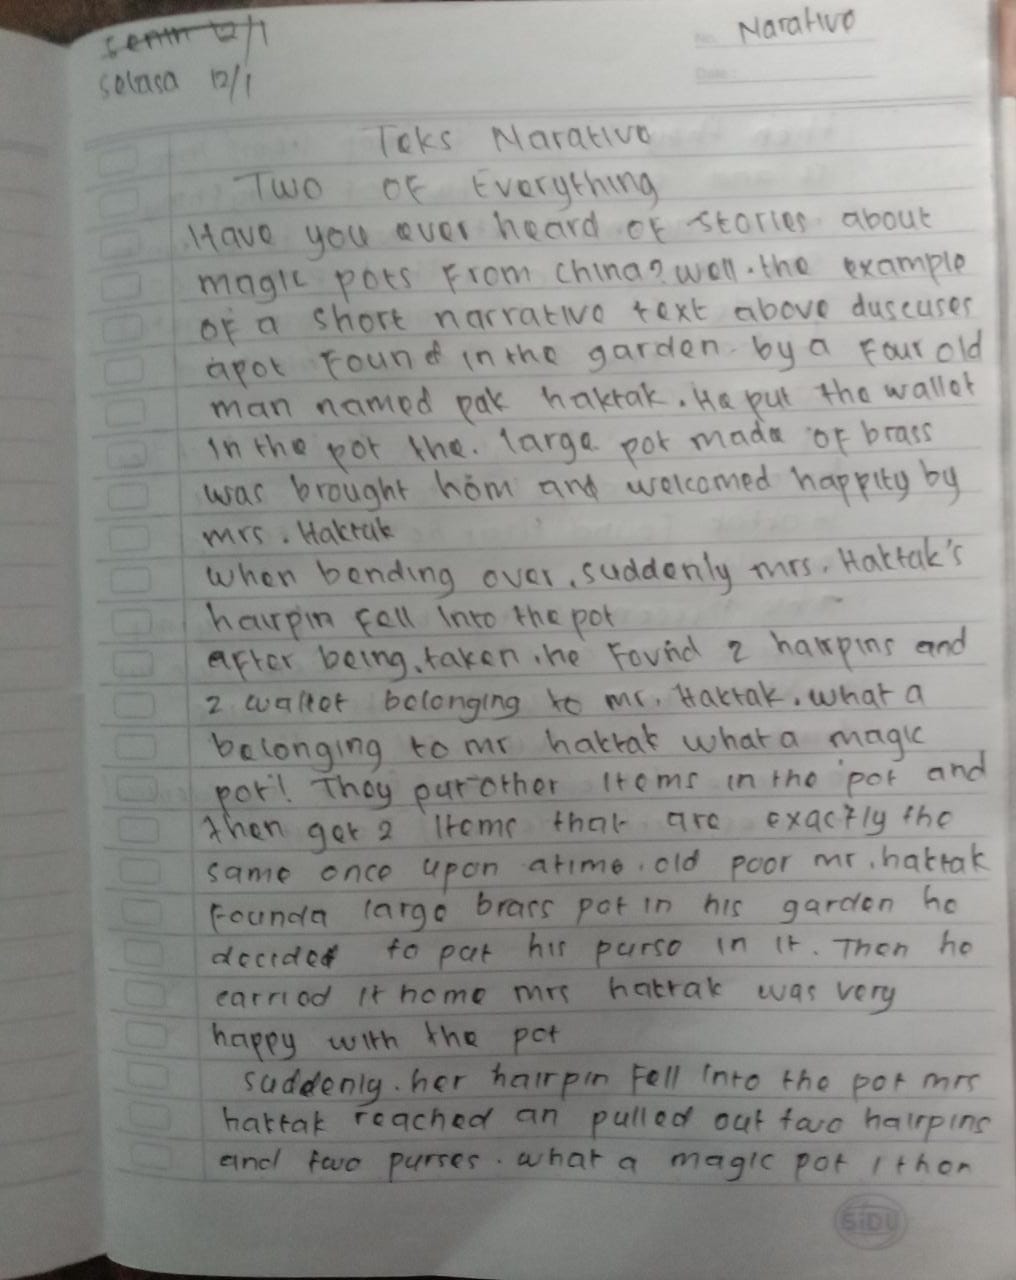 senin 12/1
Narative
No.
selasa 12/1
Date:
Teks Narative
Two of Everything
Have you ever heard of stories about
magic pots from china? well. the example
of a short narrative text above duscuses
apot Found in the garden. by a Four old
man named pak haktak. He put the wallet
in the pot the. large pot made of brass
was brought hom and welcomed happity by
mrs. Haktak
when bending over, suddenly mrs. Haktak's
hairpin fell into the pot
after being taken. he Found 2 hairpins and
2 wallet belonging to mr. Haktak. what a
belonging to mr haktak what a magic
pot! They put other items in the pot and
then get 2 items that are exactly the
same once upon atime. old poor mr. haktak
Founda large brass pot in his garden he
decided to put his purse in it. Then he
carried it home mrs haktak was very
happy with the pot
suddenly. her hairpin Fell into the pot mrs
haktak reached an pulled out two hairpins
and two purses. what a magic pot ! then
SiDU